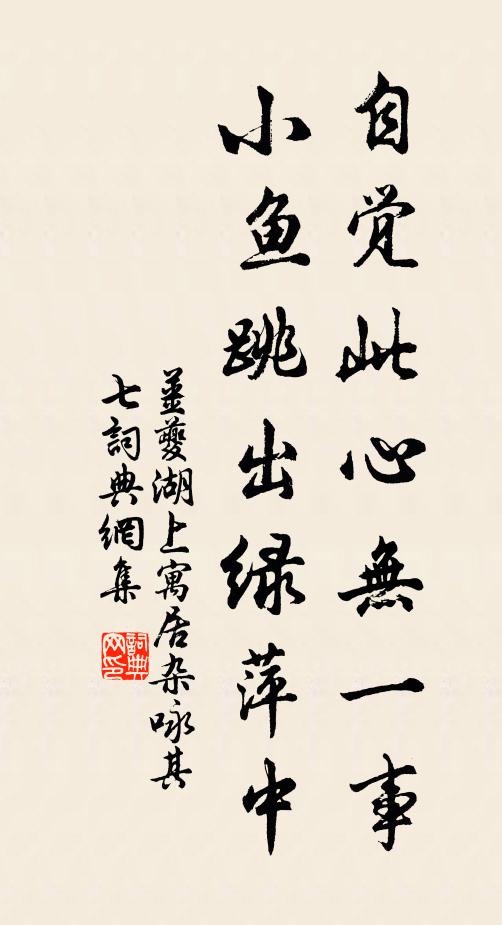 自觉此心無一事
小鱼跳出绿萍中
姜夔湖上寓居杂咏其
七詞典網集
詞典
网印